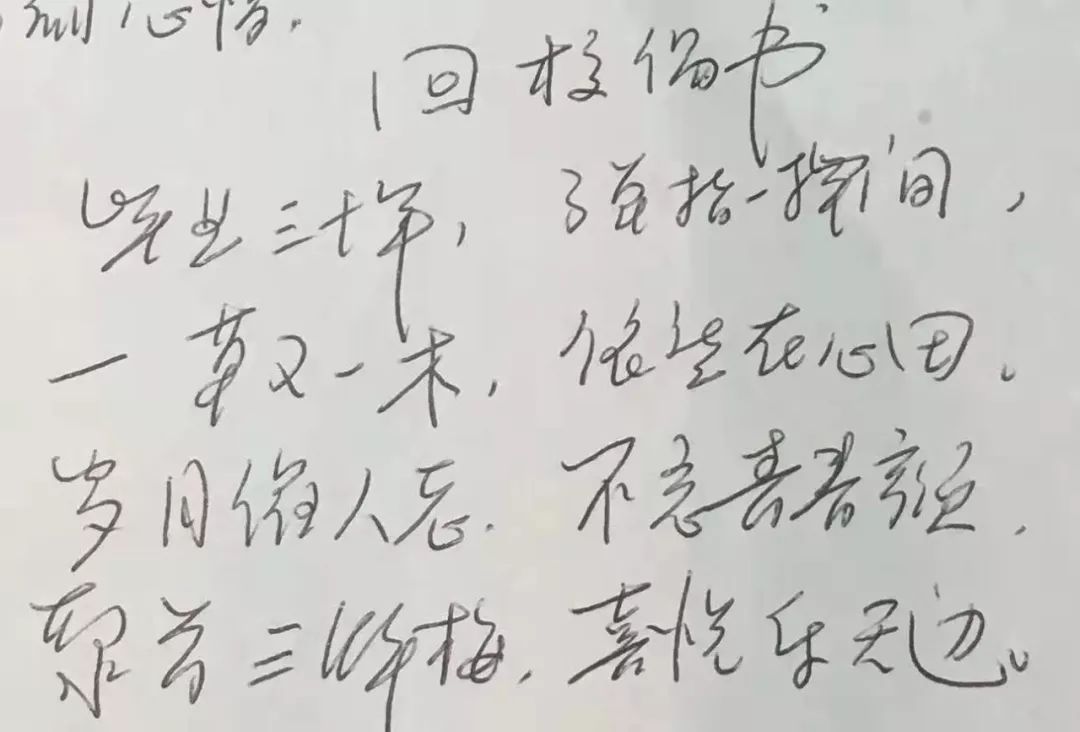 心情.
回校偶书
毕业三十年, 弹指一挥间,
一草又一木, 依在心田.
岁月催人. 不忘青春颜.
首三梅, 喜悦乐无边。